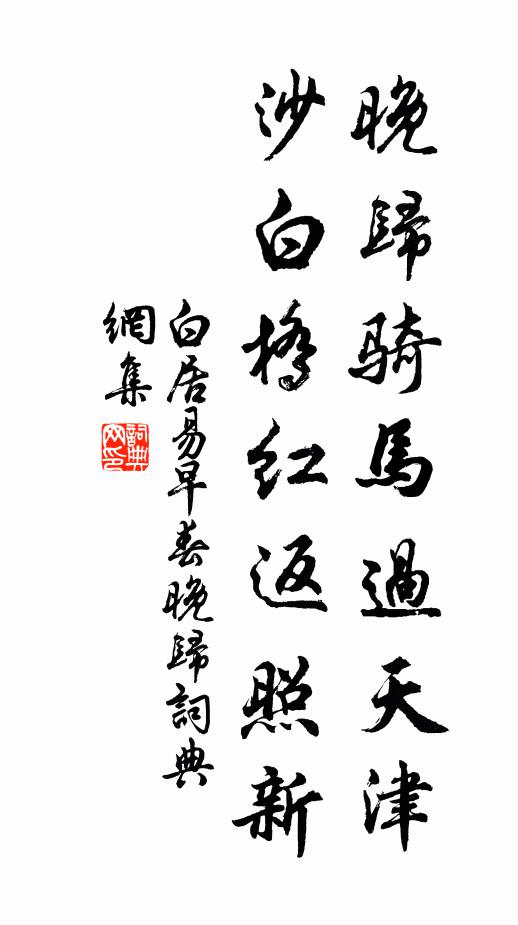 晚歸騎馬過天津
沙白橋紅返照新
白居易早春晚歸詞典
網集
詞典
网印